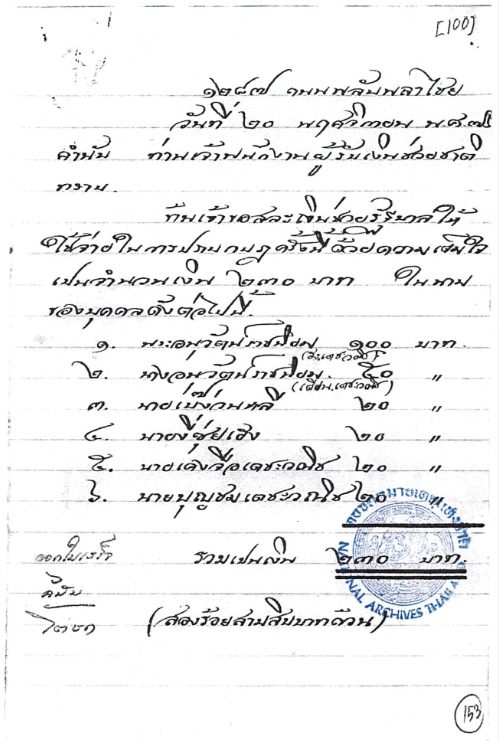 [100]
๑๒๘๗ ถนนพลับพลาไชย
วันที่ ๒๐ พฤศจิกายน พ.ศ. ๗๖
คำนับ ท่านเจ้าพนักงานผู้รับเงินช่วยชาติ
ทราบ.
ข้าพเจ้าขอสละเงินช่วยรัฐบาลให้
ใช้จ่ายในการปราบกบฏครั้งนี้ด้วยความเต็มใจ
เปนจำนวนเงิน ๒๓๐ บาท ในนาม
ของบุคคลดังต่อไปนี้.
๑. พระอนุวัตน์ราชนิยม ๑๐๐ บาท.
๒. นางอนุวัตน์ราชนิยม. ๕๐ "
๓. นาย ๒๐ "
๔. นาย ๒๐ "
๕. นาย เตชะวณิช ๒๐ "
๖. นายบุญชม เตชะวณิช ๒๐ "
รวมเปนเงิน ๒๓๐ บาท.
ออกใบเสร็จ
(สองร้อยสามสิบบาทถ้วน)
NATIONAL ARCHIVES THAILAND
153